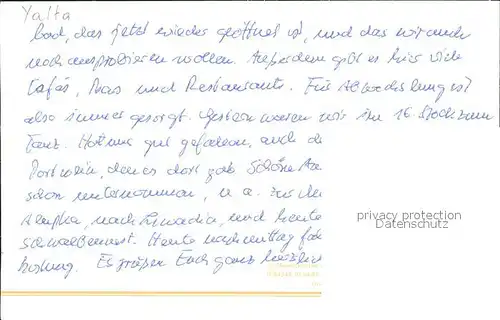 Yalta
bad, das jetzt wieder geöffnet ist, und das wir auch
noch ausprobieren wollen. Außerdem gibt es hier viele
Cafés, Bars und Restaurants. Für Abwechslung ist
also immer gesorgt. Gestern waren wir im 16. Stock zum
Tanz. Hat uns gut gefallen, auch d
Portwein, den es dort gab. Schöne
schon unternommen, u. a. zur
Alupka, nach Liwadia, und heute
Schwalbennest. Heute nachmittag
holung. Es grüßen Euch ganz herzlich
privacy protection
Datenschutz